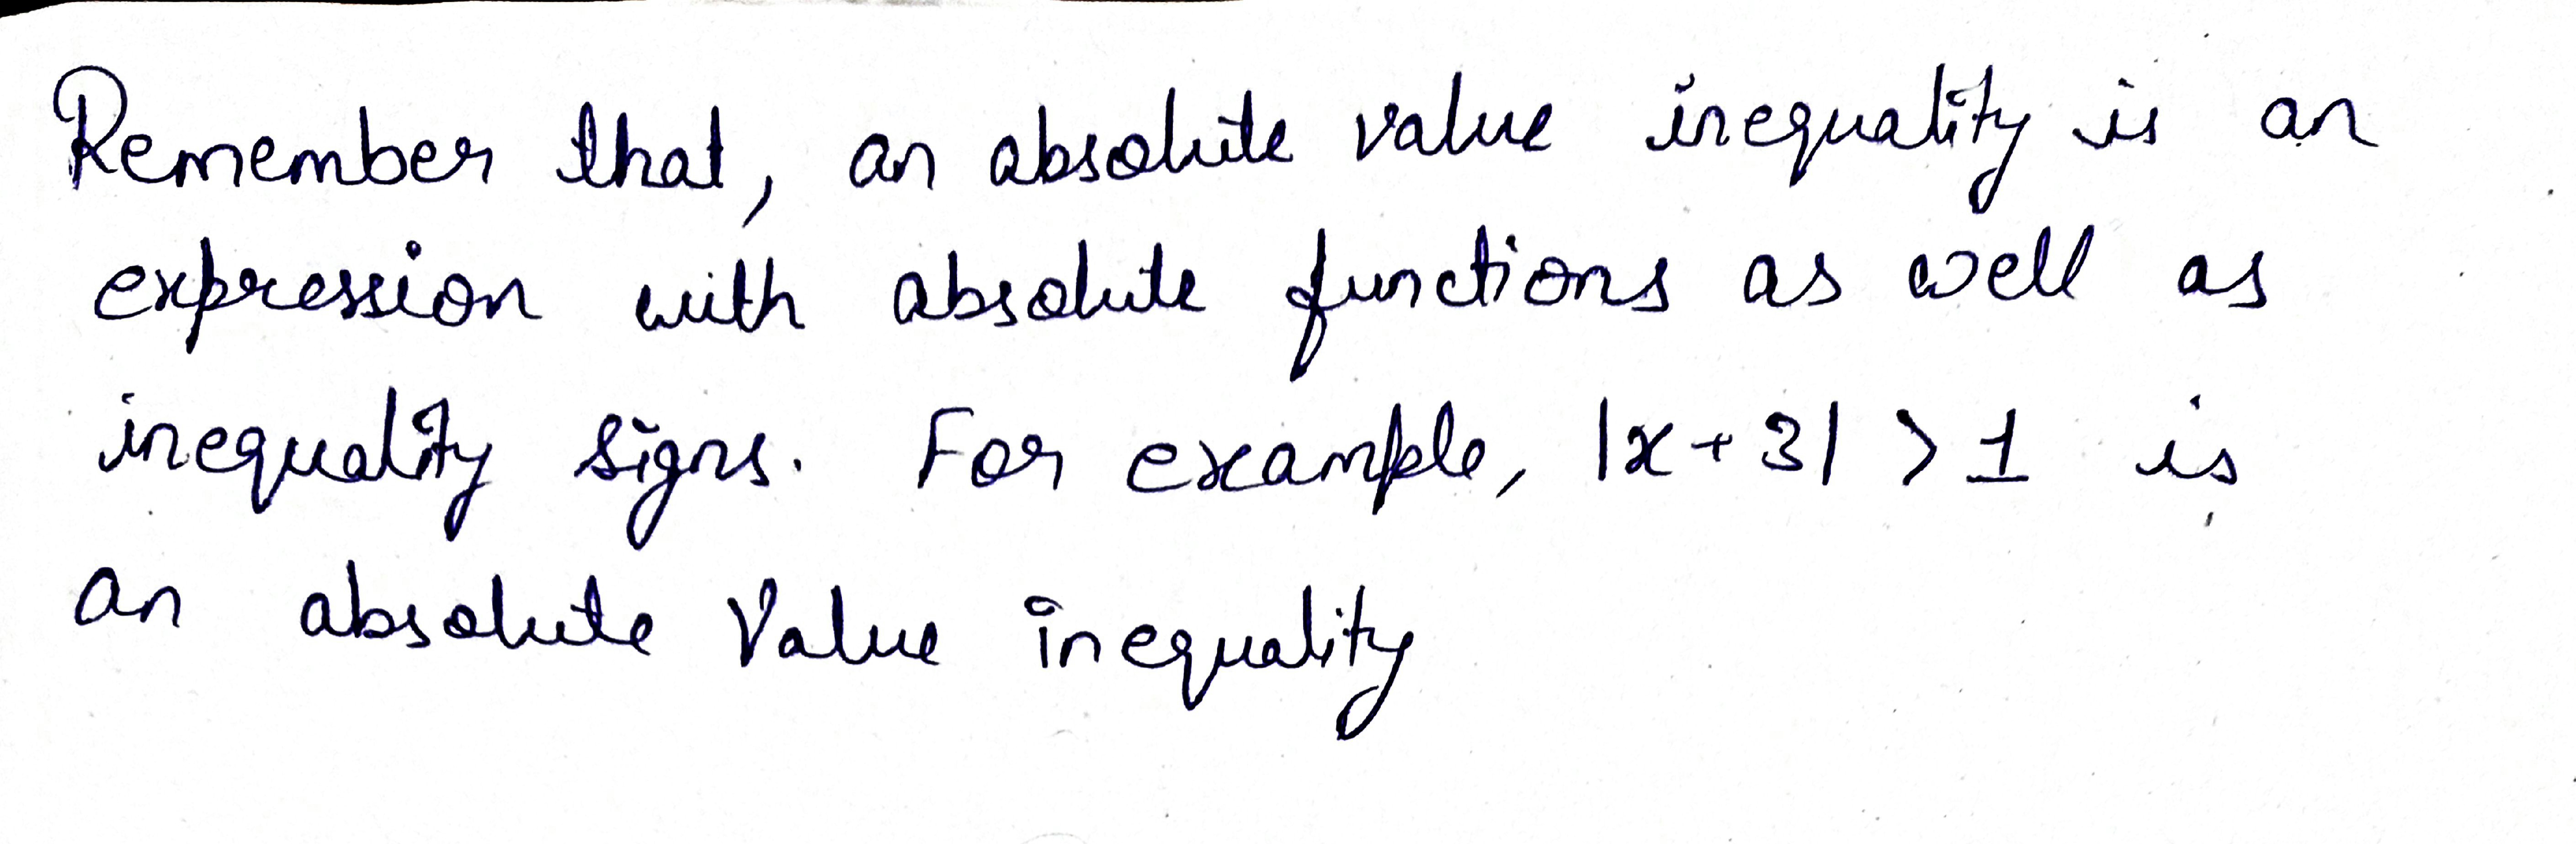 Remember that, an absolute value inequality is an
expression with absolute functions as well as
inequality signs. For example, |x+3| > 1 is
an absolute value inequality